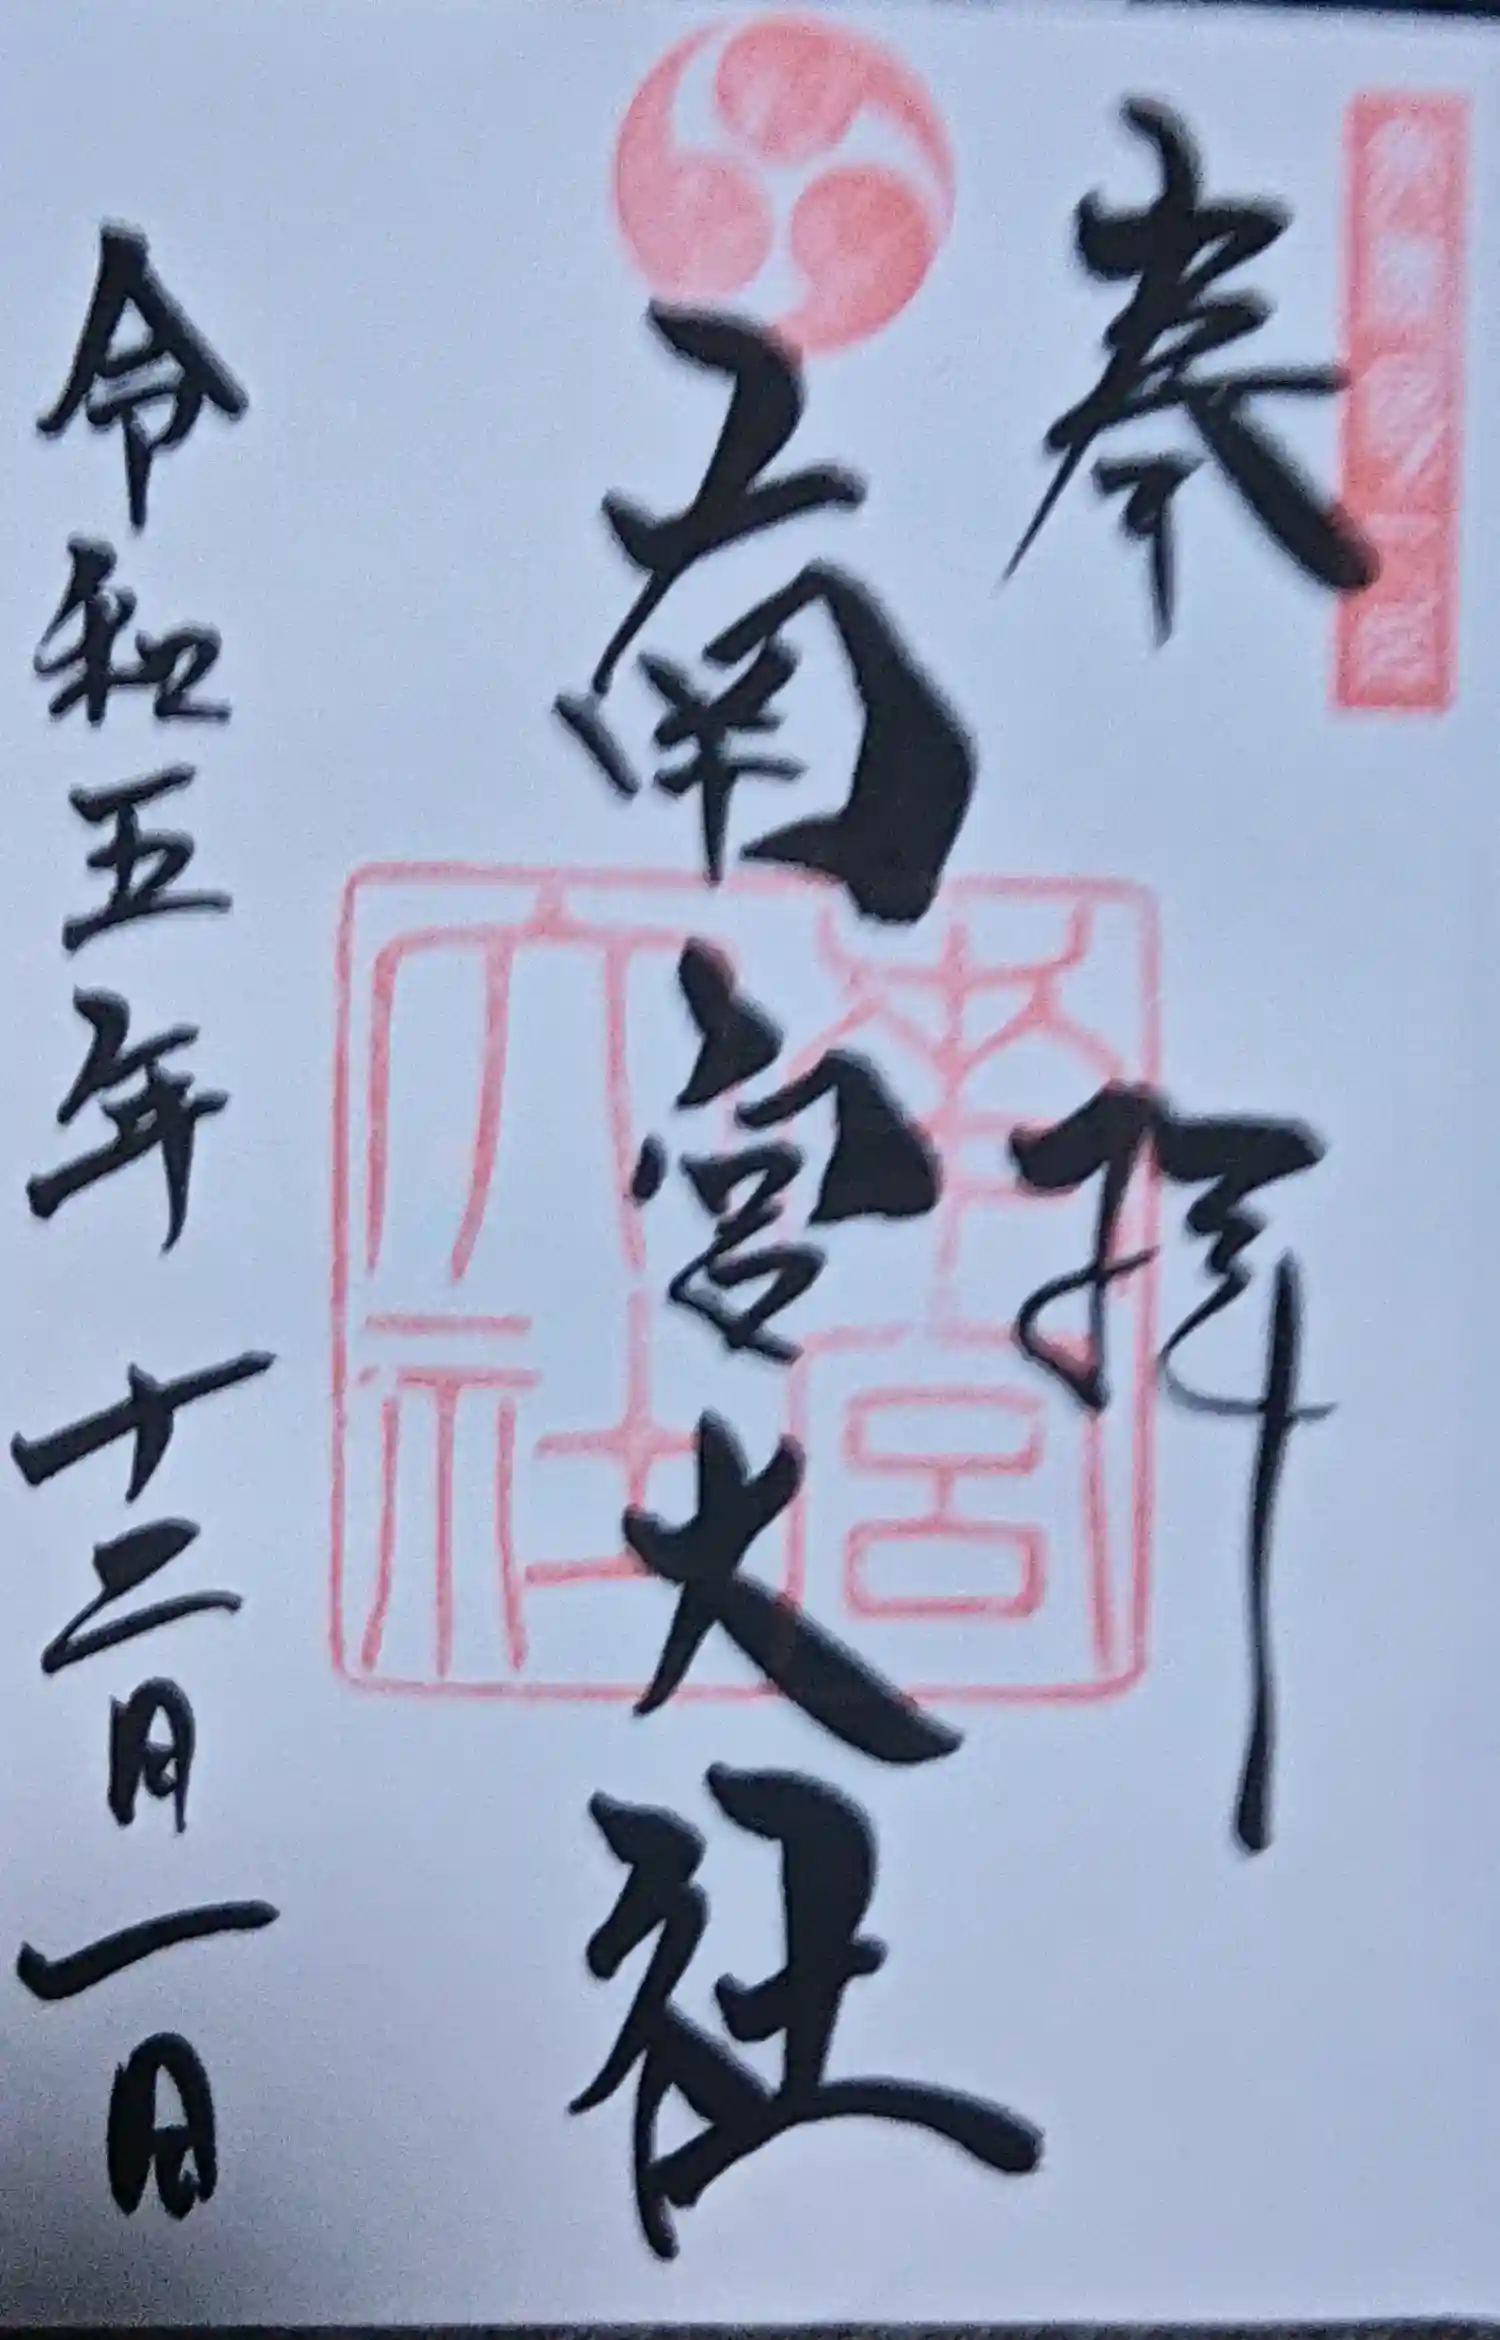 奉拝
南宮大社
南宮大社
令和五年十二月一日